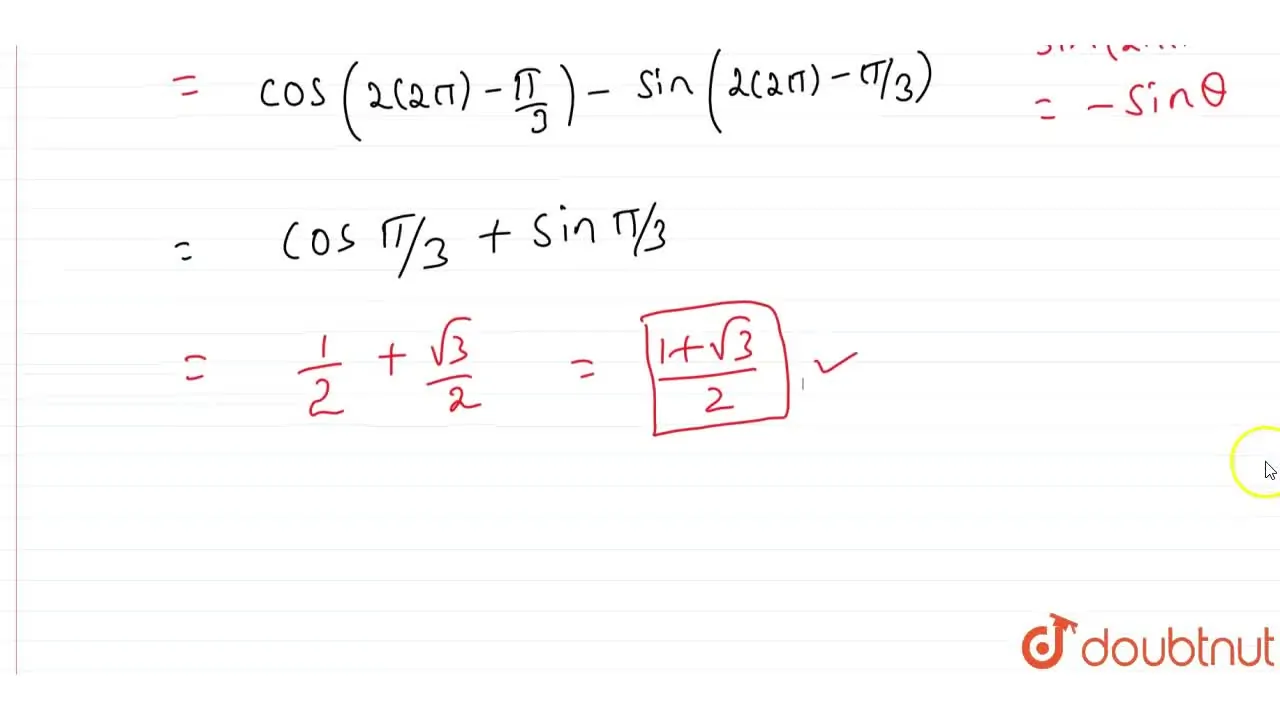 = cos(2(2π) - π/3) - sin(2(2π) - π/3)
= - sinθ
= cos π/3 + sin π/3
= 1/2 + √3/2 = (1+√3)/2 ✓
doubtnut